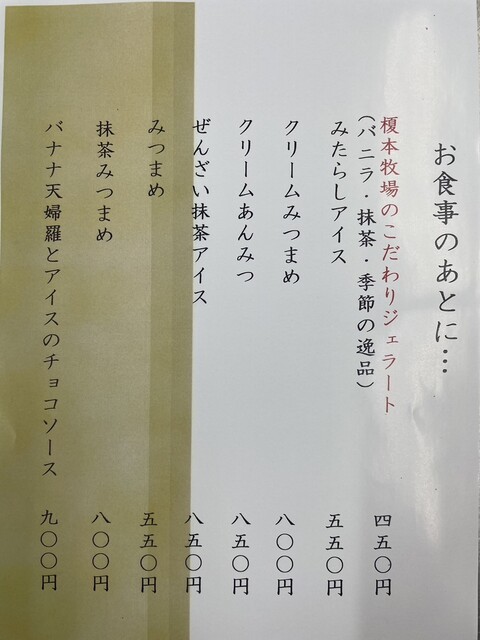 お食事のあとに…
榎本牧場のこだわりジェラート 四五〇円
(バニラ・抹茶・季節の逸品)
みたらしアイス 五五〇円
クリームみつまめ 八〇〇円
クリームあんみつ 八五〇円
ぜんざい抹茶アイス 八五〇円
みつまめ 五五〇円
抹茶みつまめ 八〇〇円
バナナ天婦羅とアイスのチョコソース 九〇〇円